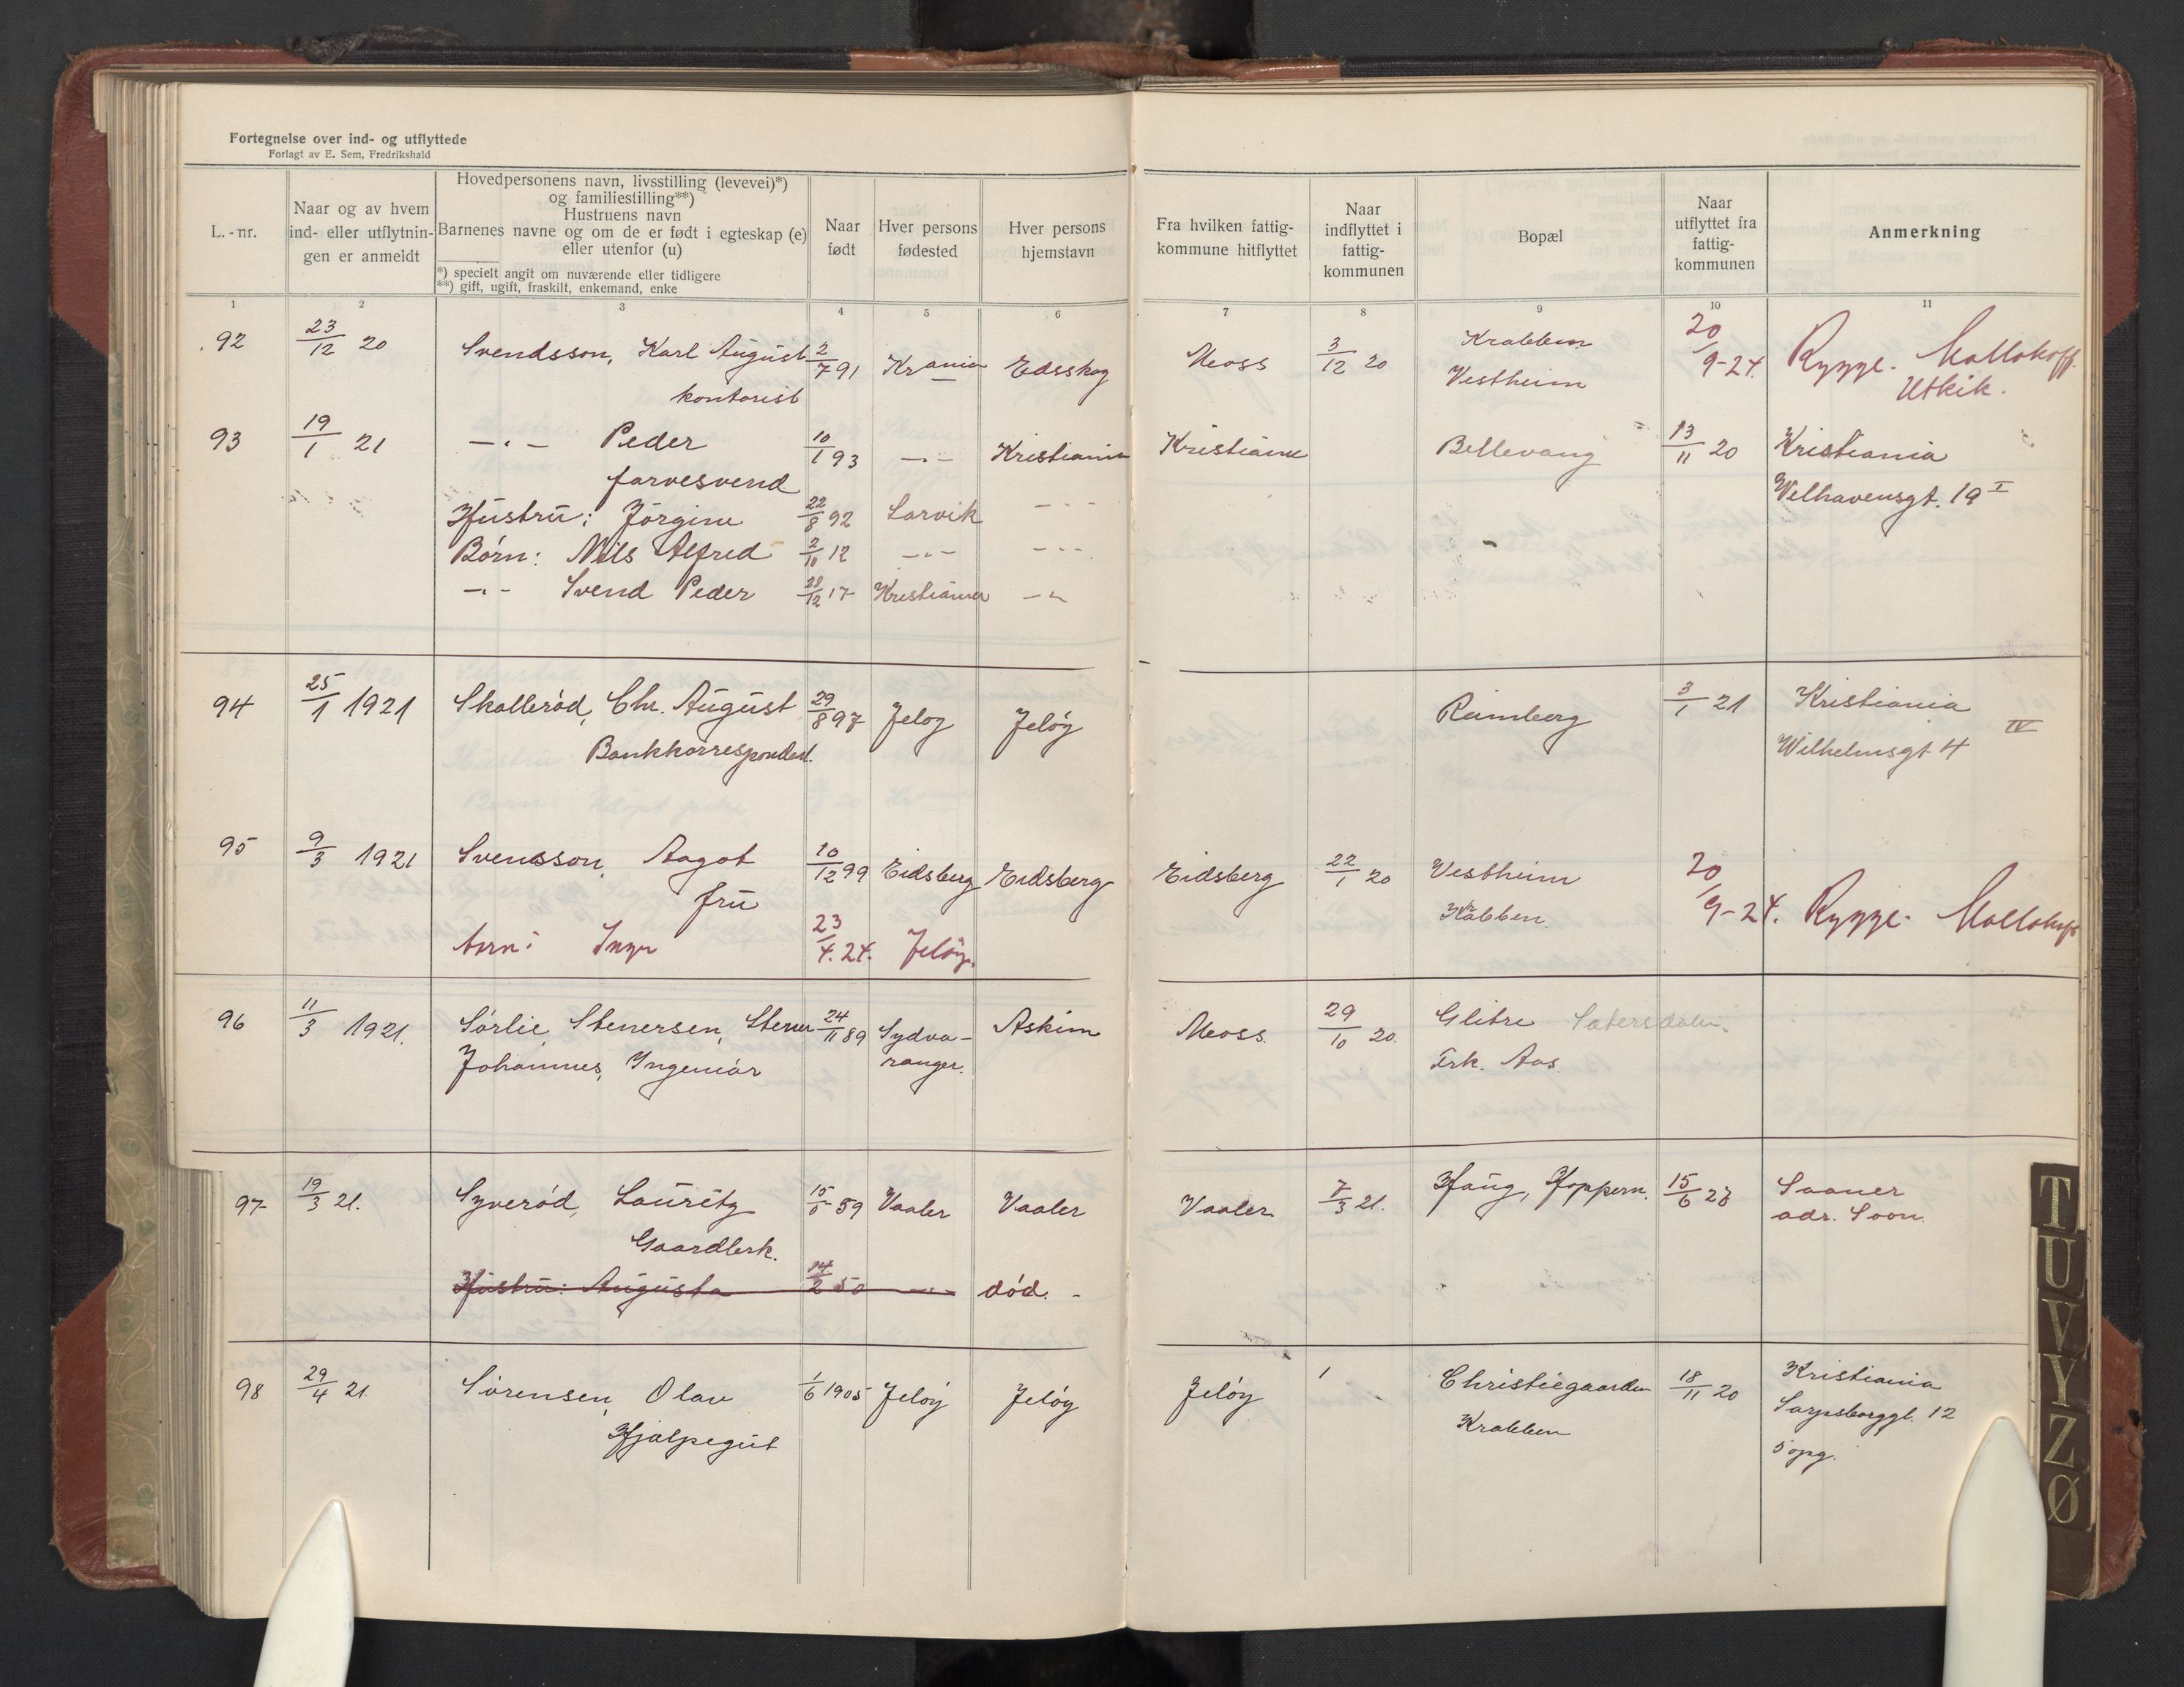 Fortegnelse over ind- og utflyttede
Forlagt av E. Sem, Fredrikshald
L.-nr.
Naar og av hvem
ind- eller utflytnin-
gen er anmeldt
Hovedpersonens navn, livsstilling (levevei)*)
og familiestilling**)
Hustruens navn
Barnenes navne og om de er født i egteskap (e)
eller utenfor (u)
*) specielt angit om nuværende eller tidligere
**) gift, ugift, fraskilt, enkemand, enke
Naar
født
Hver persons
fødested
Hver persons
hjemstavn
Fra hvilken fattig-
kommune hitflyttet
Naar
indflyttet i
fattig-
kommunen
Bopæl
Naar
utflyttet fra
fattig-
kommunen
Anmerkning
1 2 3 4 5 6 7 8 9 10 11
92 23/12 20 Svendsson, Karl August 2/7 91 Krania Edsskog Moss 3/12 20 Krabben 20/9-24. Rygge. Mallakoff
kontorist Vestheim Utkik.
93 19/1 21 -"- Peder 10/1 93 -"- Kristiania Kristiania Bellevang 13/11 20 Kristiania
farvesvend Welhavensgt. 19 I
Hustru: Jørgine 22/8 92 Larvik - - -
Børn: Nils Alfred 2/10 12 -"- - - -
-"- Svend Peder 28/12 17 Kristiania -"-
94 25/1 1921 Skallerød, Chr. August 29/8 97 Jeløy Jeløy Reimberg 3/1 21 Kristiania
Bankkorrespondent. Wilhelmsgt 4 IV
95 9/3 1921 Svensson, Aagot 10/12 99 Eidsberg Eidsberg Eidsberg 22/1 20 Vestheim 20/9-24. Rygge. Mallakoff
fru Krabben.
Barn: Inger 23/4.24. Jeløy.
96 11/3 1921. Sørlie, Stenersen, Stener 24/11 89 Sydva- Askim Moss. 29/10 20. Glitre Sætersdalen
Johannes, Ingeniør ranger. Frk. Aas
97 19/3 21. Syverød, Lauritz 15/5 59 Vaaler Vaaler Vaaler 7/3 21. Haug, Hoppern. 15/6 23 Saaner
Gaardbrk. adr. Soon.
Hustru: Augusta 14/2 50 -"- død. -
98 29/4 21. Sørensen, Olav 1/6 1905 Jeløy Jeløy Jeløy 1 Christiegaarden 18/11 20 Kristiania
Hjælpegut Krabben Sarpsborggt. 12
5 opg.
T
U
V
Y
Z
Ø